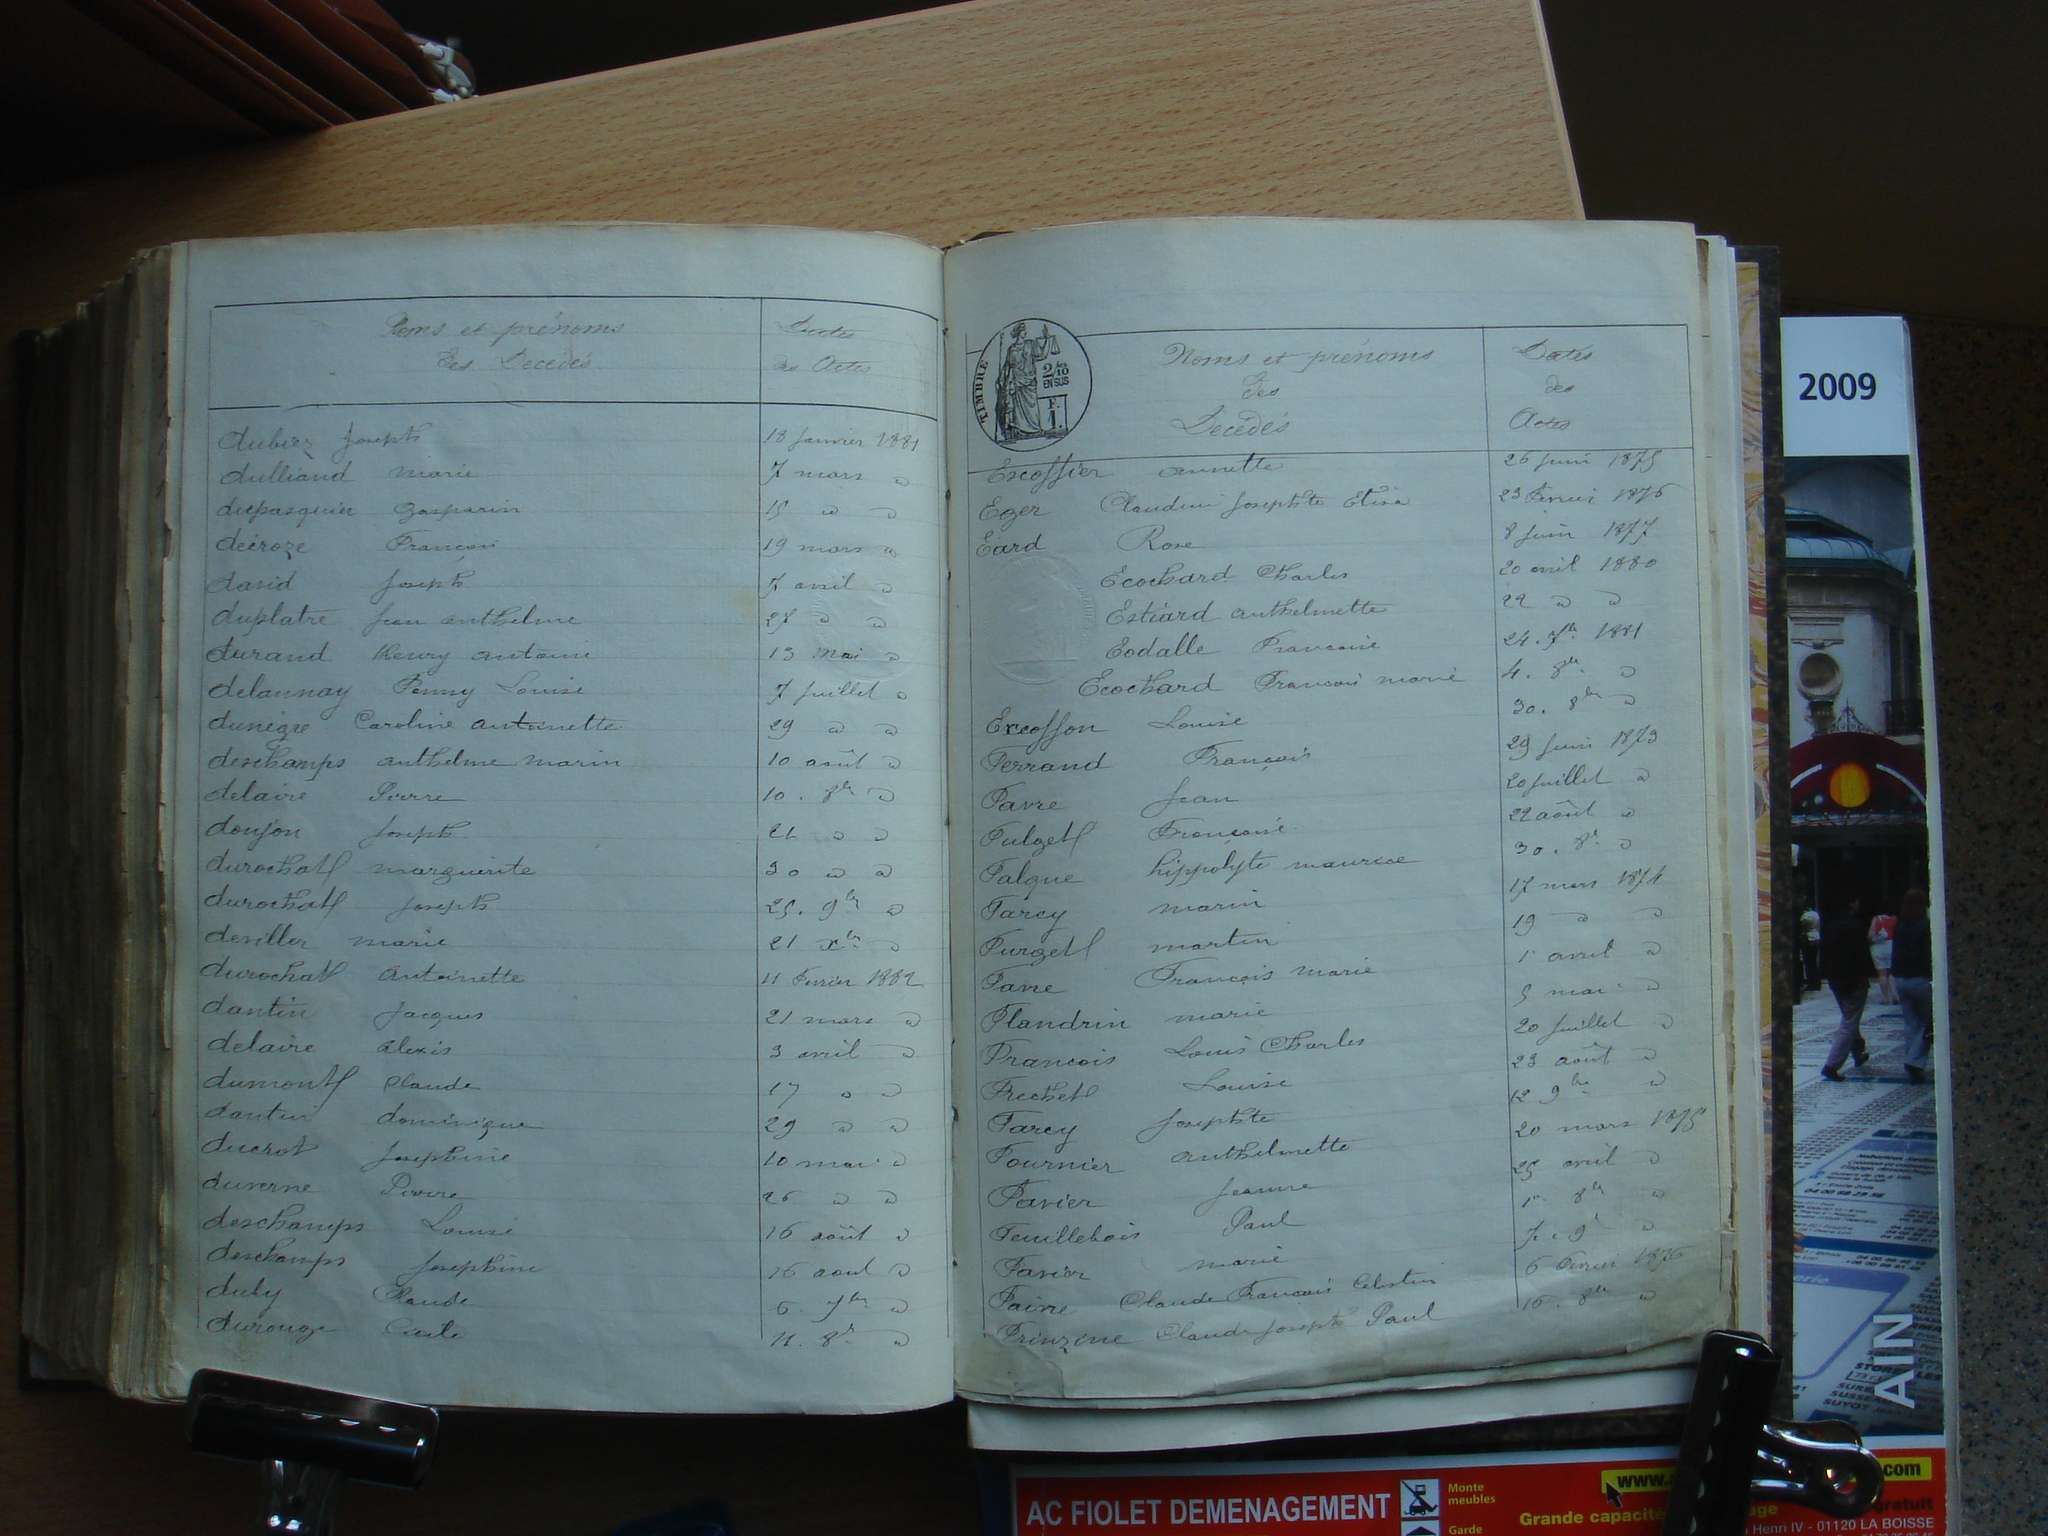 Noms et prénoms
des Décédés
Dates
des Actes
dubiez Joseph 18 Janvier 1881
dulliand marie 7 mars "
dupasquier Gasparin 15 " "
décroze François 19 mars "
david Joseph 7 avril "
duplatre Jean anthelme 27 " "
durand Henry antoine 13 mai "
delaunay Fenny Louise 7 Juillet "
dunègre Caroline antoinette 29 " "
deschamps anthelme marin 10 août "
delaire Pierre 10. 8bre "
donjon Joseph 21 " "
durochat marguerite 30 " "
durochat Joseph 25. 9bre "
deviller marie 21 Xbre "
durochat antoinette 11 Fevrier 1882
dantin Jacques 21 mars "
delaire alexis 3 avril "
dumont Claude 17 " "
dantin dominique 29 " "
ducrot Josephine 10 mai "
duverne Pierre 26 " "
deschamps Louise 16 août "
deschamps Josephine 16 aout "
duby Claude 6. 7bre "
durouge Cécile 11. 8bre "
TIMBRE
2/10
EN SUS
F.
1.
Noms et prénoms
des
Décédés
Dates
des
Actes
Escoffier annette 26 Juin 1875
Eger Claudine Josephte Elisa 23 Fevrier 1876
Eard Rose 8 Juin 1877
Ecochard Charles 20 avril 1880
Estiard anthelmette 22 " "
Eodalle Françoise 24. 7bre 1881
Ecochard François marie 4. 8bre "
Excoffon Louise 30. 8bre "
Ferrand François 29 Juin 1873
Favre Jean 20 Juillet "
Fulget Françoise 22 août "
Falque hippolyte maurice 30. 8bre "
Farcy marin 17 mars 1874
Furget martin 19 " "
Favre François marie 1er avril "
Flandrin marie 5 mai "
François Louis Charles 20 Juillet "
Frechet Louise 23 août "
Farcy Josephte 12 9bre "
Fournier anthelmette 20 mars 1875
Favier Jeanne 25 avril "
Feuillebois Paul 1er 8bre "
Favier marie 7. 9bre "
Faivre Claude François Celestin 6 Fevrier 1876
Frinzine Claude Joseph Paul 16. 8bre "
2009
AIN
AC FIOLET DEMENAGEMENT
Monte
meubles
Garde
www.
.com
Grande capacité
gratuit
Henri IV - 01120 LA BOISSE